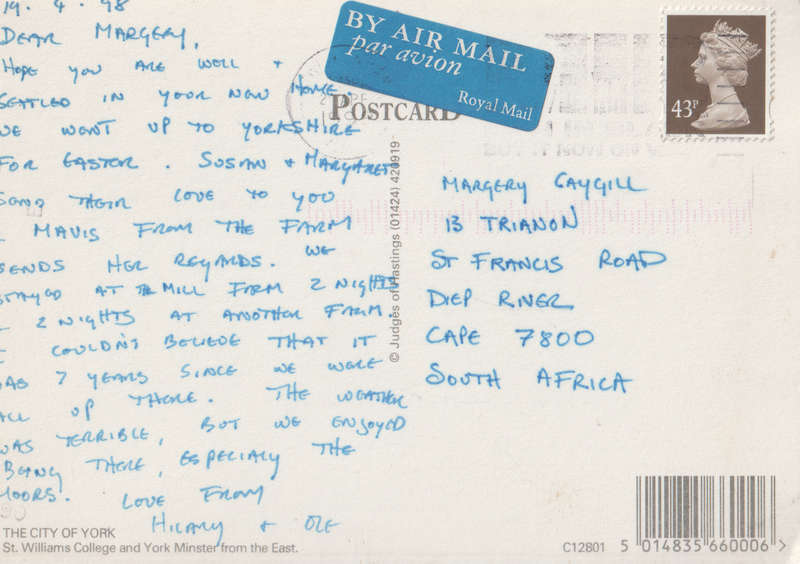 19. 4. 98
DEAR MARGERY,
HOPE YOU ARE WELL +
SETTLED IN YOUR NEW HOME.
WE WENT UP TO YORKSHIRE
FOR EASTER. SUSAN & MARGARET
SEND THEIR LOVE TO YOU
& MAVIS FROM THE FARM
SENDS HER REGARDS. WE
STAYED AT THE MILL FARM 2 NIGHTS
& 2 NIGHTS AT ANOTHER FARM.
I COULDN'T BELIEVE THAT IT
WAS 7 YEARS SINCE WE WERE
ALL UP THERE. THE WEATHER
WAS TERRIBLE, BUT WE ENJOYED
BEING THERE, ESPECIALY THE
MOORS. LOVE FROM
HILARY & OLE
THE CITY OF YORK
St. Williams College and York Minster from the East.
BY AIR MAIL
par avion
Royal Mail
POSTCARD
© Judges of Hastings (01424) 420919
43P
MARGERY CAYGILL
13 TRIANON
ST FRANCIS ROAD
DIEP RIVER
CAPE 7800
SOUTH AFRICA
C12801
5 014835 660006 >